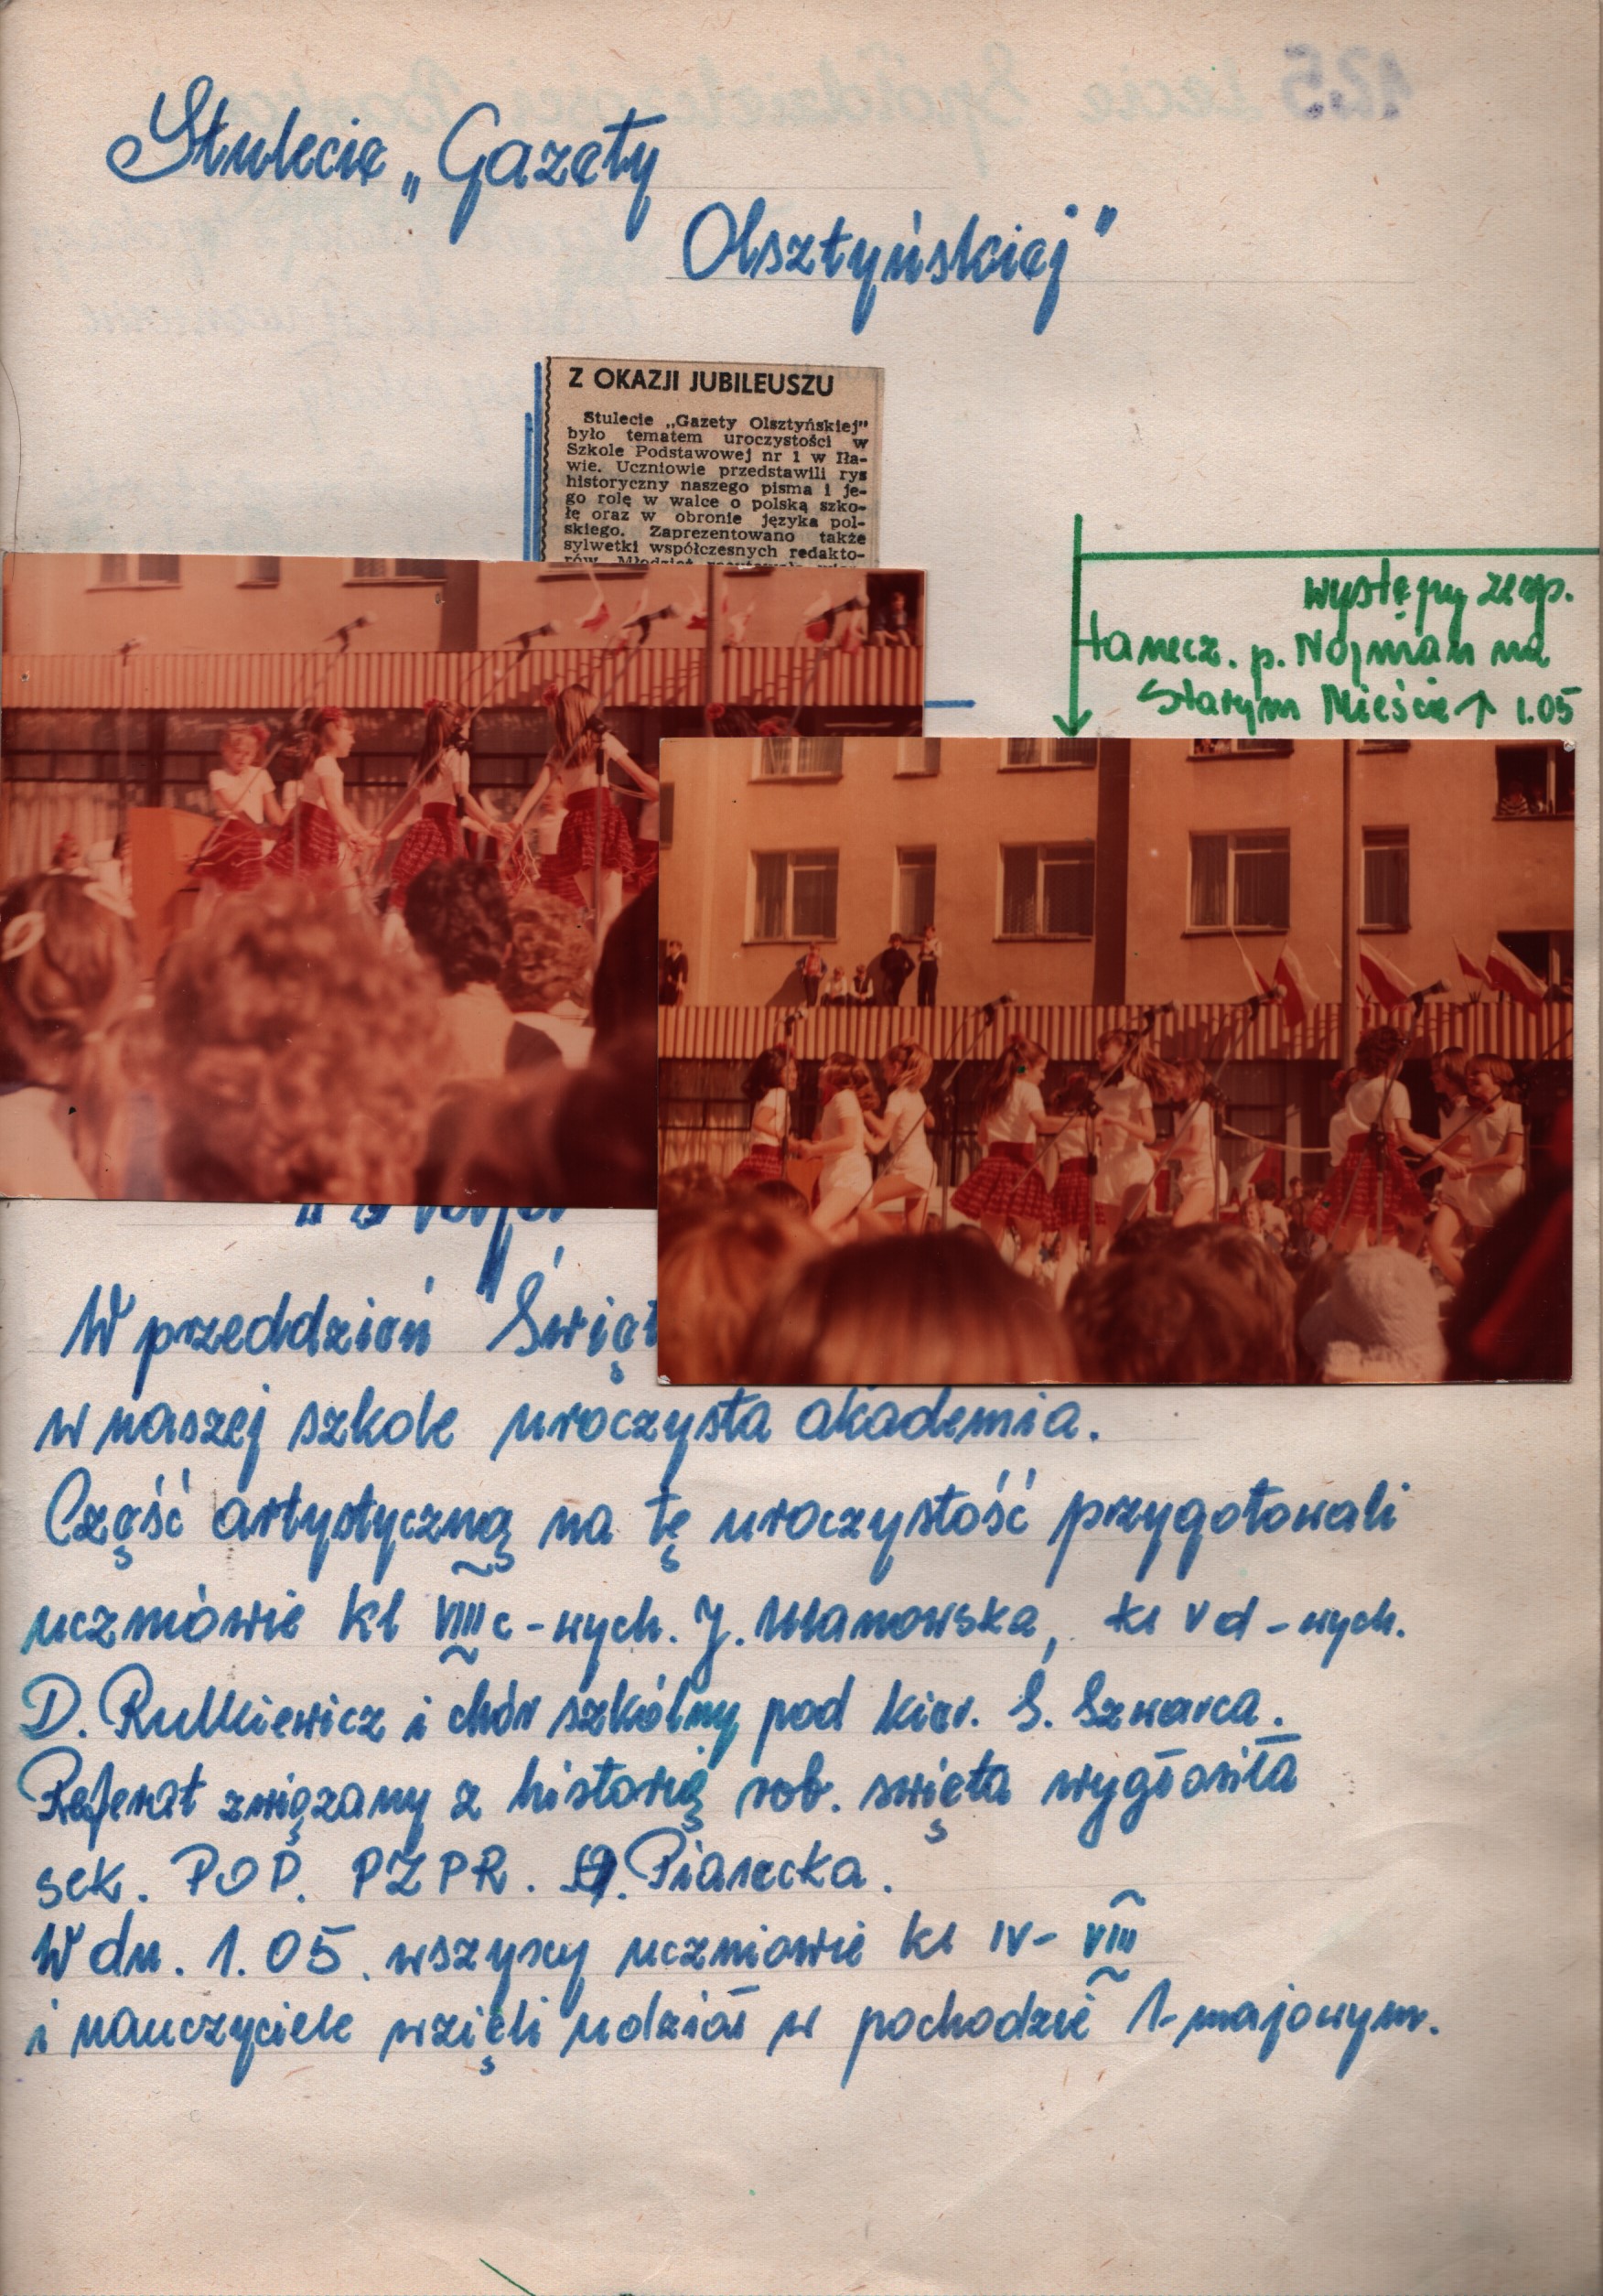 Stulecie „Gazety
Olsztyńskiej"
Z OKAZJI JUBILEUSZU
Stulecie „Gazety Olsztyńskiej"
było tematem uroczystości w
Szkole Podstawowej nr 1 w Iła-
wie. Uczniowie przedstawili rys
historyczny naszego pisma i je-
go rolę w walce o polską szko-
łę oraz w obronie języka pol-
skiego. Zaprezentowano także
sylwetki współczesnych redakto-
rów. Młodzież
występy zesp.
tanecz. p. Nojman na
Starym Mieście ↑ 1.05
W przeddzień Święt
w naszej szkole uroczysta akademia.
Część artystyczną na tę uroczystość przygotowali
uczniowie kl VIII c - wych. J. Ulanowska, kl V d - wych.
D. Rutkiewicz i chór szkólny pod kier. S. Szwarca.
Referat związany z historią rob. święta wygłosiła
sek. POP. PZPR. Piasecka.
W dn. 1.05. wszyscy uczniowie kl IV - VIII
i nauczyciele wzięli udział w pochodzie 1-majowym.